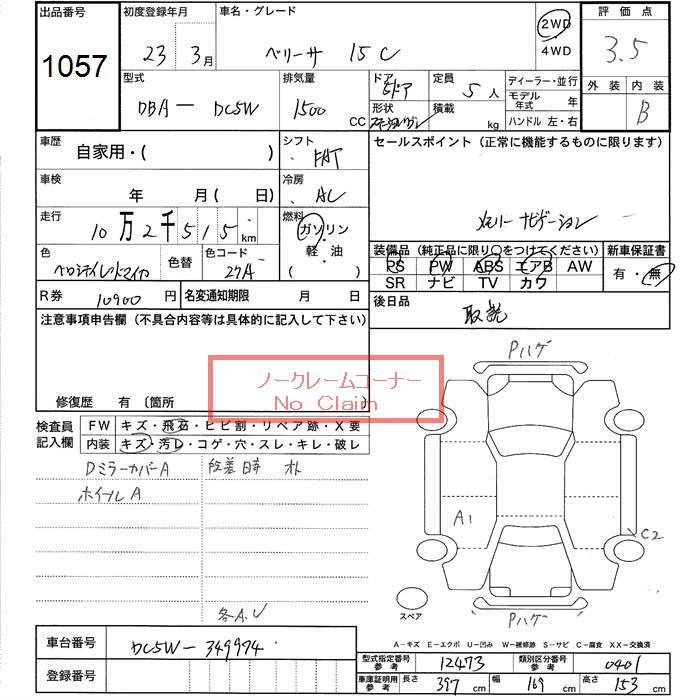 出品番号 1057
初度登録年月 23 3月
車名・グレード ベリーサ 15C
2WD
4WD
評価点 3.5
外装 内装 B
型式 DBA－DC5W
排気量 1500 CC
ドア 5ドア
形状
定員 5人
積載 kg
ディーラー・並行
モデル年式 年
ハンドル 左・右
車歴 自家用・( )
シフト FAT
車検 年 月 ( 日)
冷房 AC
セールスポイント (正常に機能するものに限ります)
メモリーナビゲーション
走行 10万2千515km
燃料 ガソリン・軽油 ( )
色
色替
色コード 27A
装備品 (純正品に限り○をつけてください)
PS PW ABS エアB AW
SR ナビ TV カワ
新車保証書 有・無
R券 10900円
名変通知期限 月 日
後日品 取説
注意事項申告欄 (不具合内容等は具体的に記入して下さい)
ノークレームコーナー
No Claim
修復歴 有 〔箇所
検査員記入欄
FW キズ・飛石・ヒビ割・リペア跡・X要
内装 キズ・汚レ・コゲ・穴・スレ・キレ・破レ
DミラーカバーA
ホイールA
各A.U
Pハゲ
A1
C2
Pハゲ
スペア
A－キズ E－エクボ U－凹み W－補修跡 S－サビ C－腐食 XX－交換済
車台番号 DC5W－349974
登録番号
型式指定番号参考 12473
類別区分番号参考 0401
車庫証明用参考 長さ 397cm 幅 169cm 高さ 153cm